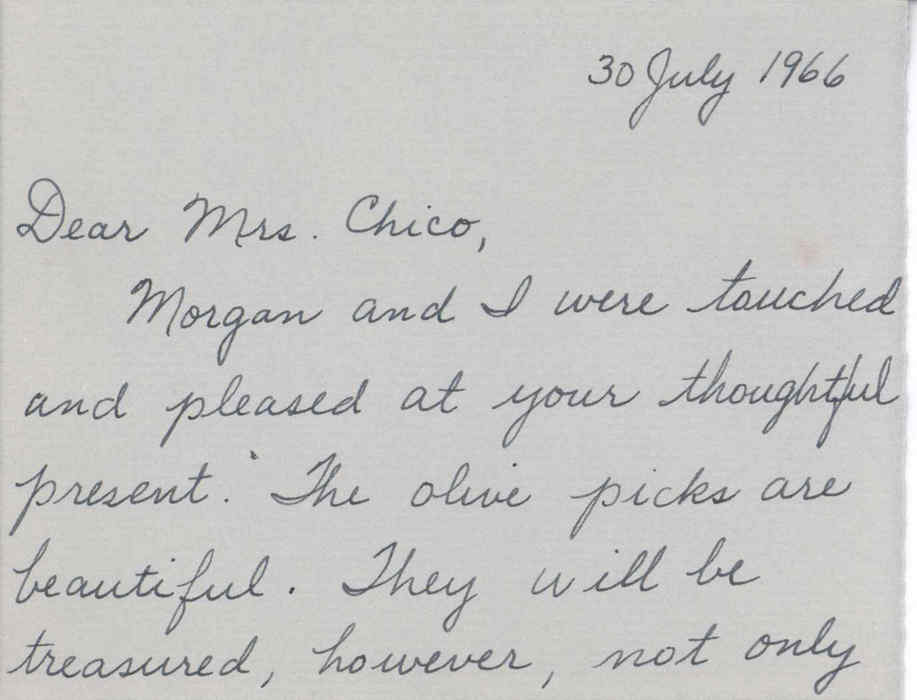 30 July 1966
Dear Mrs. Chico,
Morgan and I were touched
and pleased at your thoughtful
present. The olive picks are
beautiful. They will be
treasured, however, not only